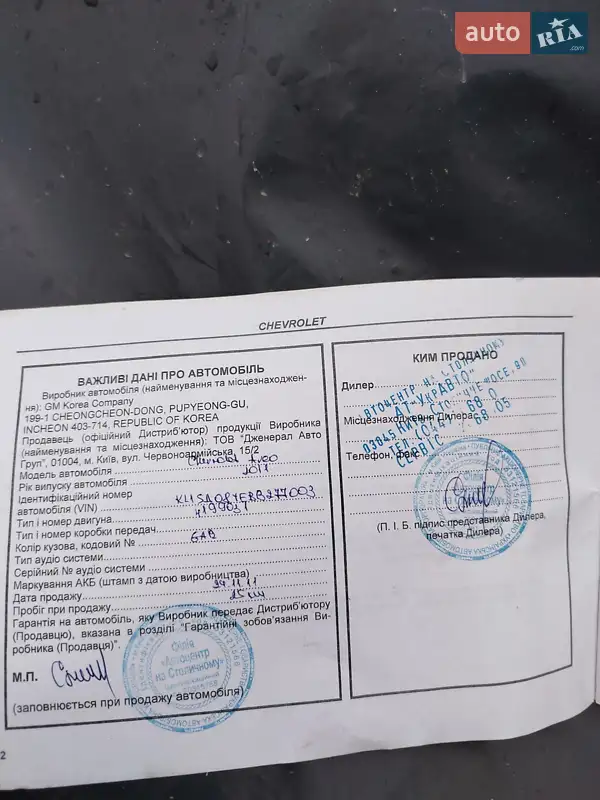 auto RIA .com
CHEVROLET
ВАЖЛИВІ ДАНІ ПРО АВТОМОБІЛЬ
Виробник автомобіля (найменування та місцезнаходжен-
ня): GM Korea Company
199-1 CHEONGCHEON-DONG, PUPYEONG-GU,
INCHEON 403-714, REPUBLIC OF KOREA
Продавець (офіційний Дистриб'ютор) продукції Виробника
(найменування та місцезнаходження): ТОВ "Дженерал Авто
Груп", 01004, м. Київ, вул. Червоноармійська, 15/2
Модель автомобіля
Рік випуску автомобіля 2011
Ідентифікаційний номер
автомобіля (VIN)
Тип і номер двигуна
Тип і номер коробки передач
Колір кузова, кодовий № GAD
Тип аудіо системи
Серійний № аудіо системи
Маркування АКБ (штамп з датою виробництва)
Дата продажу 24.11.11
Пробіг при продажу 15 км
Гарантія на автомобіль, яку Виробник передає Дистриб'ютору
(Продавцю), вказана в розділі "Гарантійні зобов'язання Ви-
робника (Продавця)".
М.П.
(заповнюється при продажу автомобіля)
Філія
«Автоцентр
на Столичному»
2
КИМ ПРОДАНО
Дилер
АВТОЦЕНТР НА СТОЛИЧНОМУ
АТ "УКРАВТО"
Місцезнаходження Дилера
Телефон, факс
СЕРВІС
(П. І. Б. підпис представника Дилера,
печатка Дилера)